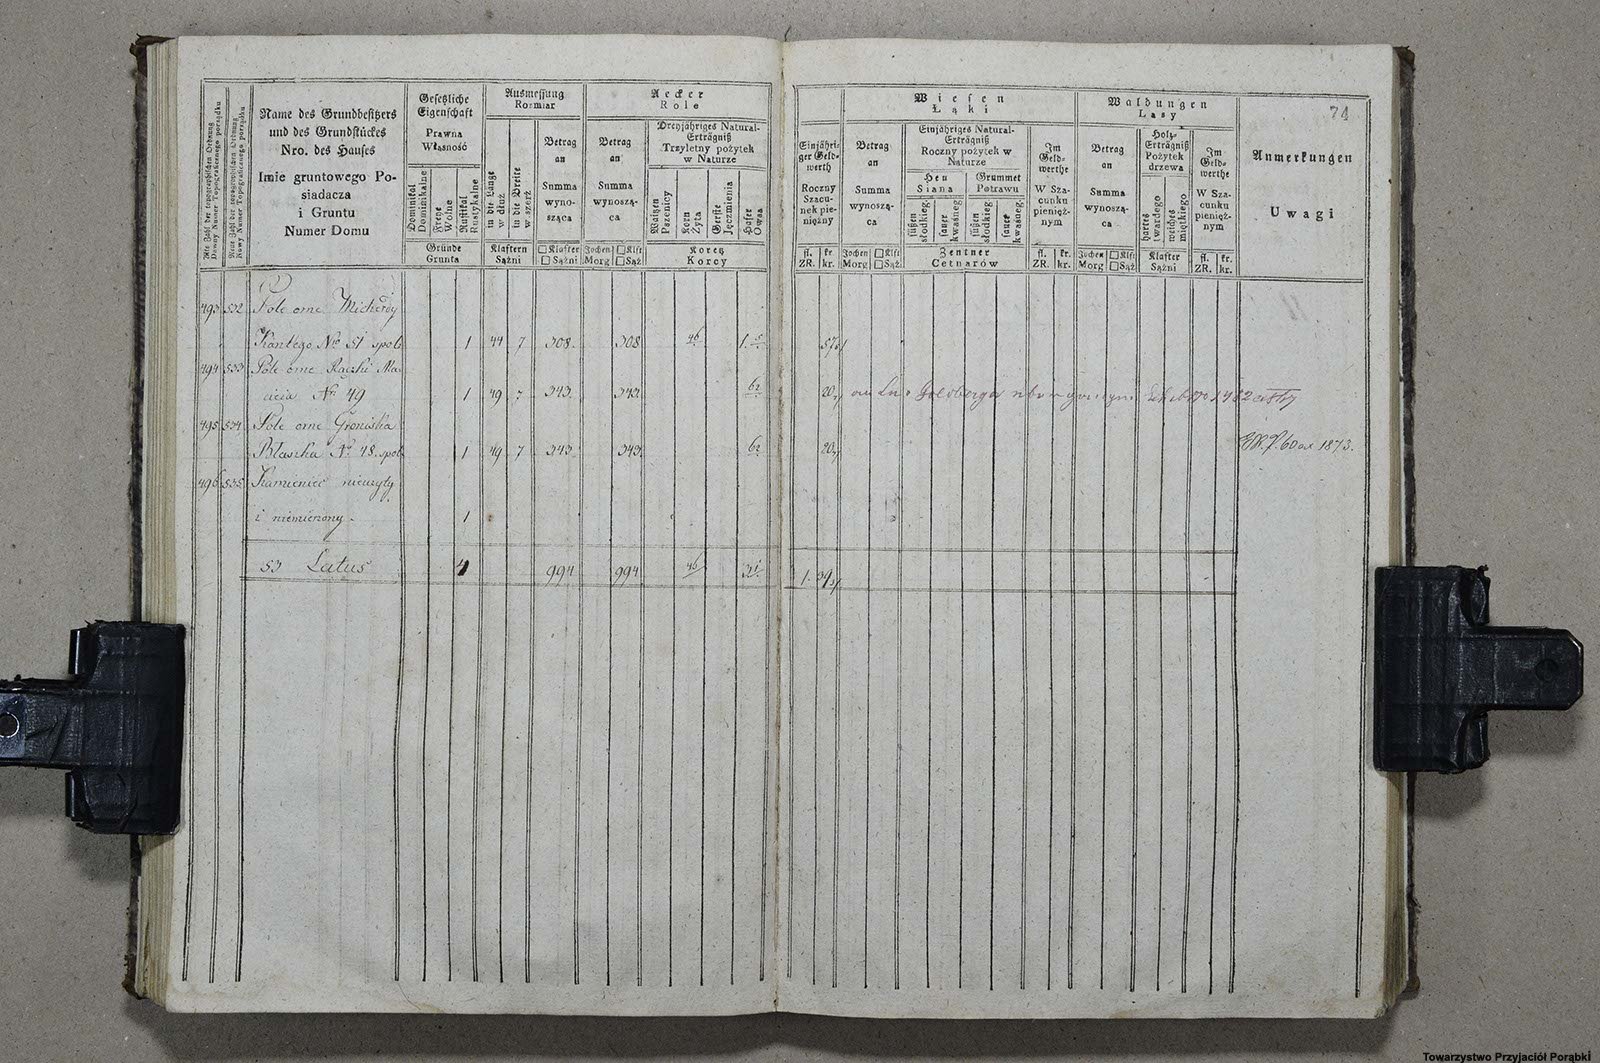 Alte Zahl der topographischen Ordnung
Dawny Numer Topograficznego porządku
Neue Zahl der topographischen Ordnung
Nowy Numer Topograficznego porządku
Name des Grundbesitzers
und des Grundstückes
Nro. des Hauses
Imie gruntowego Po-
siadacza
i Gruntu
Numer Domu
Gesetzliche
Eigenschaft
Prawna
Własność
Dominikal
Dominikalne
Freye
Wolne
Rustikal
Rustykalne
Gründe
Grunta
Ausmessung
Rozmiar
in die Länge
w dłuż
in die Breite
w szerz
Klaftern
Sążni
Betrag
an
Summa
wyno-
sząca
□ Klafter
□ Sążni
Aecker
Role
Betrag
an
Summa
wynoszą-
ca
Jochen □ Klft
Morg □ Sąż
Dreyjähriges Natural-
Erträgniß
Trzyletny pożytek
w Naturze
Waitzen
Pszenicy
Korn
Żyta
Gerste
Jęczmienia
Hafer
Owsa
Koretz
Korcy
Einjähri-
ger Geld-
werth
Roczny
Szacu-
nek pie-
niężny
fl. kr.
ZR. kr.
Wiesen
Łąki
Betrag
an
Summa
wynoszą-
ca
Jochen □ Klft
Morg □ Sąż
Einjähriges Natural-
Erträgniß
Roczny pożytek w
Naturze
Heu
Siana
Grummet
Potrawu
süßen
słodkieg.
sauer
kwaśneg
süßen
słodkieg
sauer
kwaśneg.
Zentner
Cetnarów
Im
Geld-
werthe
W Sza-
cunku
pienięż-
nym
fl. kr.
ZR. kr.
Waldungen
Lasy
Betrag
an
Summa
wynoszą-
ca
Jochen □ Klft
Morg □ Sąż
Holz-
Erträgniß
Pożytek
drzewa
hartes
twardego
weiches
miękkiego
Klafter
Sążni
Im
Geld-
werthe
W Sza-
cunku
pienięż-
nym
fl. kr.
ZR. kr.
Anmerkungen
Uwagi
71
493 532 Pole orne
Kantego No 51 spoln 1 44 7 308. 308 46 1. 5
494 533 Pole orne Rączki Ma
cieia No. 49 1 49 7 343. 343. 62 20
Goldberga 1482
495 534 Pole orne Groniska
Błaszka No. 48. spoln 1 49 7 343 343. 62 20
60 1873.
496 535 Kamieniec nieużyty
i niemierzony. 1
53 Latus 4 994 994 46 1. 39
Towarzystwo Przyjaciół Porąbki